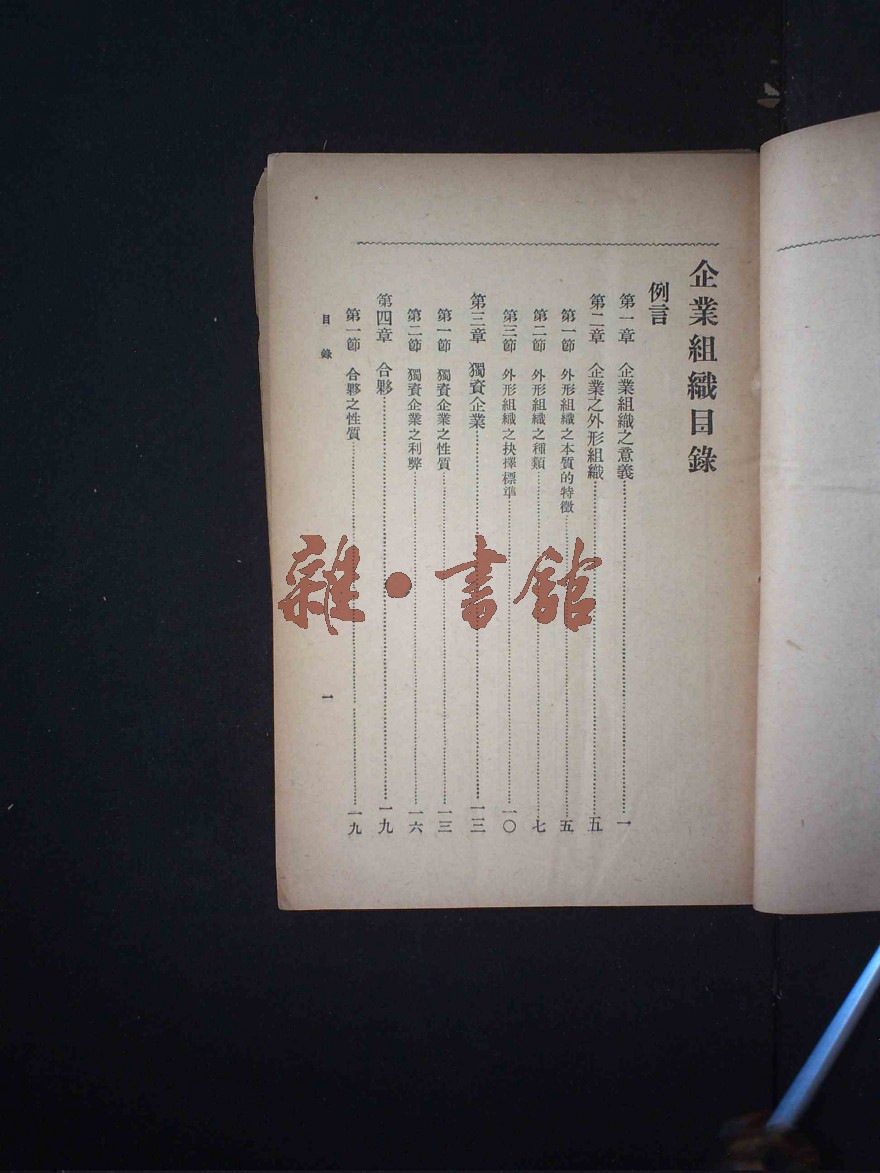 企業組織目錄
例言
第一章　企業組織之意義……一
第二章　企業之外形組織……五
第一節　外形組織之本質的特徵……五
第二節　外形組織之種類……七
第三節　外形組織之抉擇標準……一〇
第三章　獨資企業……一三
第一節　獨資企業之性質……一三
第二節　獨資企業之利弊……一六
第四章　合夥……一九
第一節　合夥之性質……一九
目錄　一
雜·書館